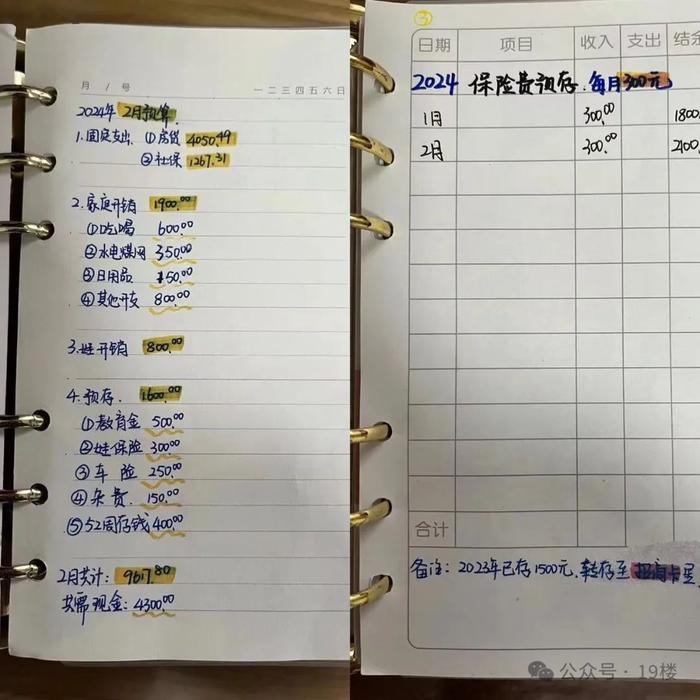 月 / 号 一 二 三 四 五 六 日
2024年 2月预算
1.固定支出 ①房贷 4050.49
②社保 1267.31
2.家庭开销 1900.00
①吃喝 600.00
②水电煤网 350.00
③日用品 150.00
④其他开支 800.00
3.娃开销 800.00
4.预存. 1600.00
①教育金 500.00
②娃保险 300.00
③车险 250.00
④杂费 150.00
⑤52周存钱 400.00
2月共计: 9617.80
共需现金: 4300.00
③
日期 项目 收入 支出 结余
2024 保险费预存. 每月300元
1月 300.00 1800.
2月 300.00 2100.
合计
备注: 2023年已存1500元.转存至招商卡里
公众号 · 19楼